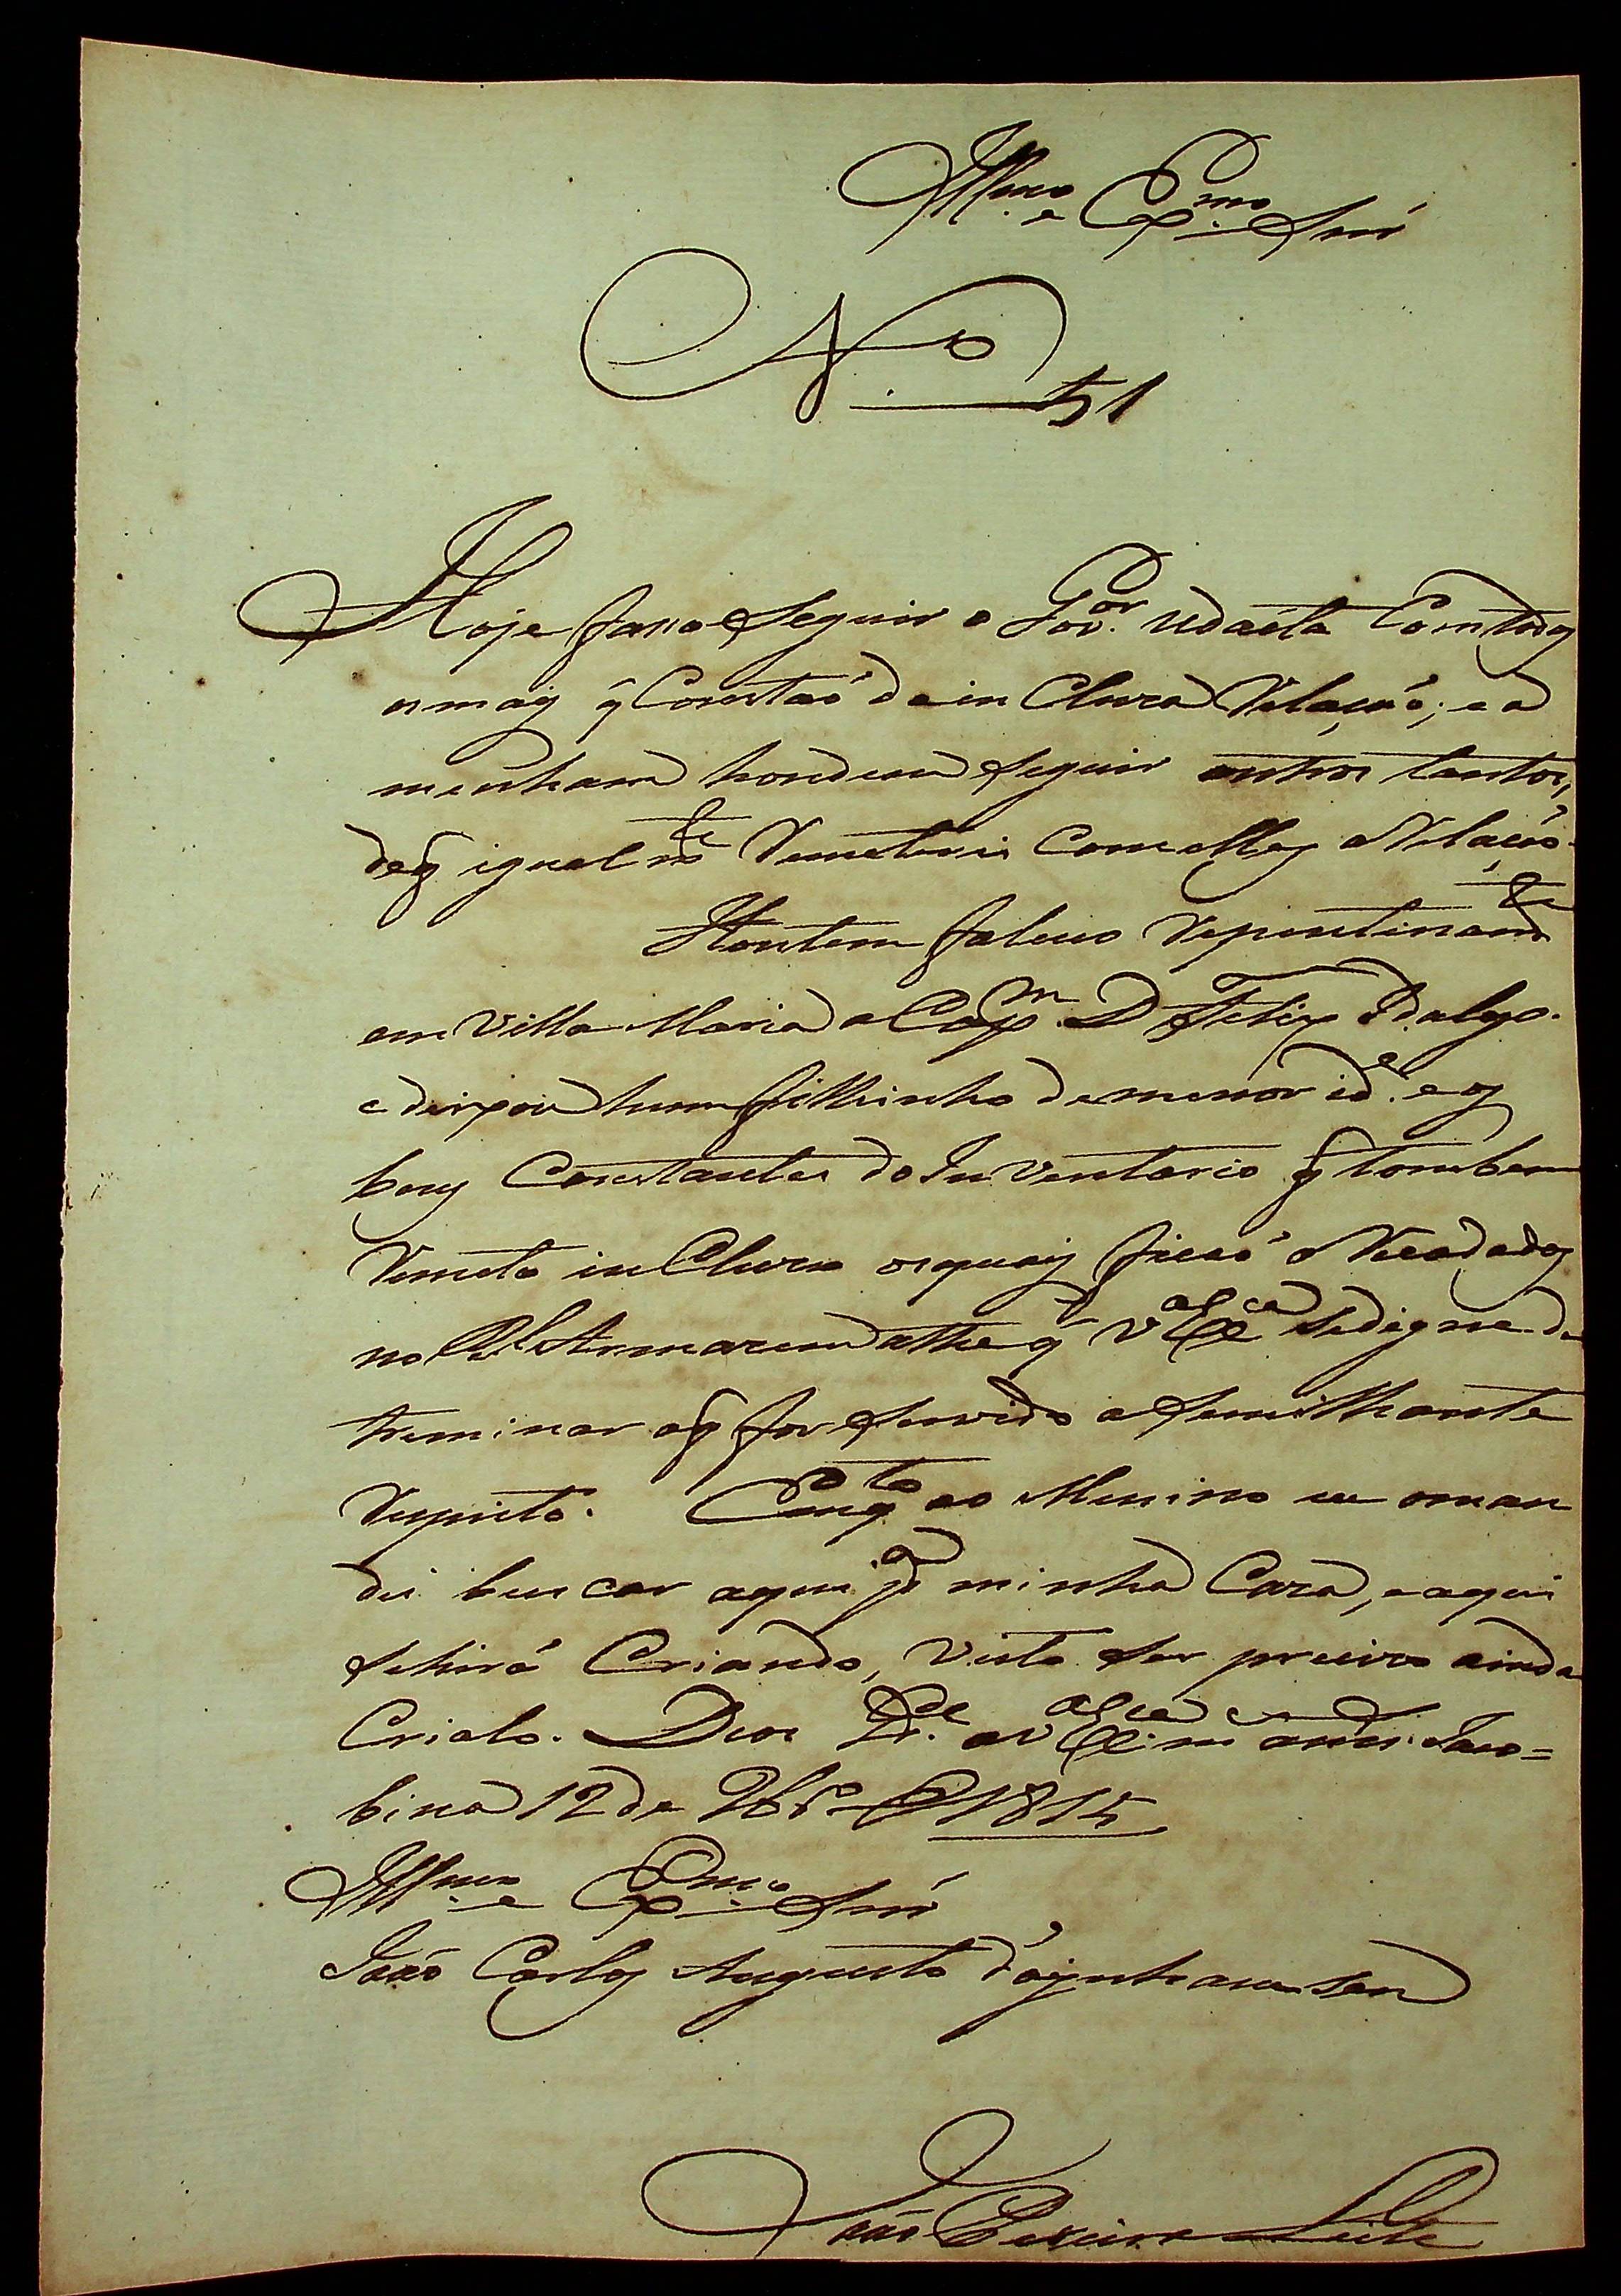 Illmo. e Exmo. Snr̃
No. 51
Hoje fasso Seguir o Gov.or Udaeta Com todos
os mais q̃ Constaõ da in Cluza Relaçaõ; e a
menham hordeno Seguir outros tantos,
de q̃ igualm.te Remeterei Com elles a Relaçaõ.
Hontem faleceo Repentinam.te
em Villa Maria o Cap.m D Felix Idalgo.
e deixou hum filhinho de menor id.e e os
bens Constantes do Inventario q̃ tambem
Remeto in Cluzo os quais ficaõ aRecadados
no R.l Armazem athe q̃ V Ex.ca Se digne de
treminar o q̃ for Servido a Semilhante
Respeito. Em q.to ao Menino eu o man
dei buscar aqui p.a minha Caza, e aqui
Se hirá Criando, Visto Ser precizo ainda
Crialo. Deos G.e a V Ex.ca m. an.s Jaco=
bina 12 de 9br.o de 1815
Illmo. e Exmo. Snr̃
Joaõ Carlos Augusto d'oynhausen
Joaõ Pereira Leite